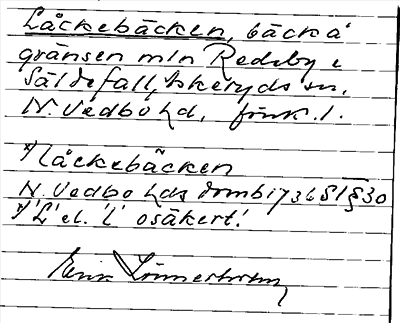 Låckebäcken, bäck å
gränsen mln Redeby o
Säldefall, Askeryds sn,
N. Vedbo hd, Jönk. l.
*) låckebäcken
N. Vedbo hds domb 1736 § 30
*) 'L' el. 'l' osäkert!
Erik Linnerholm